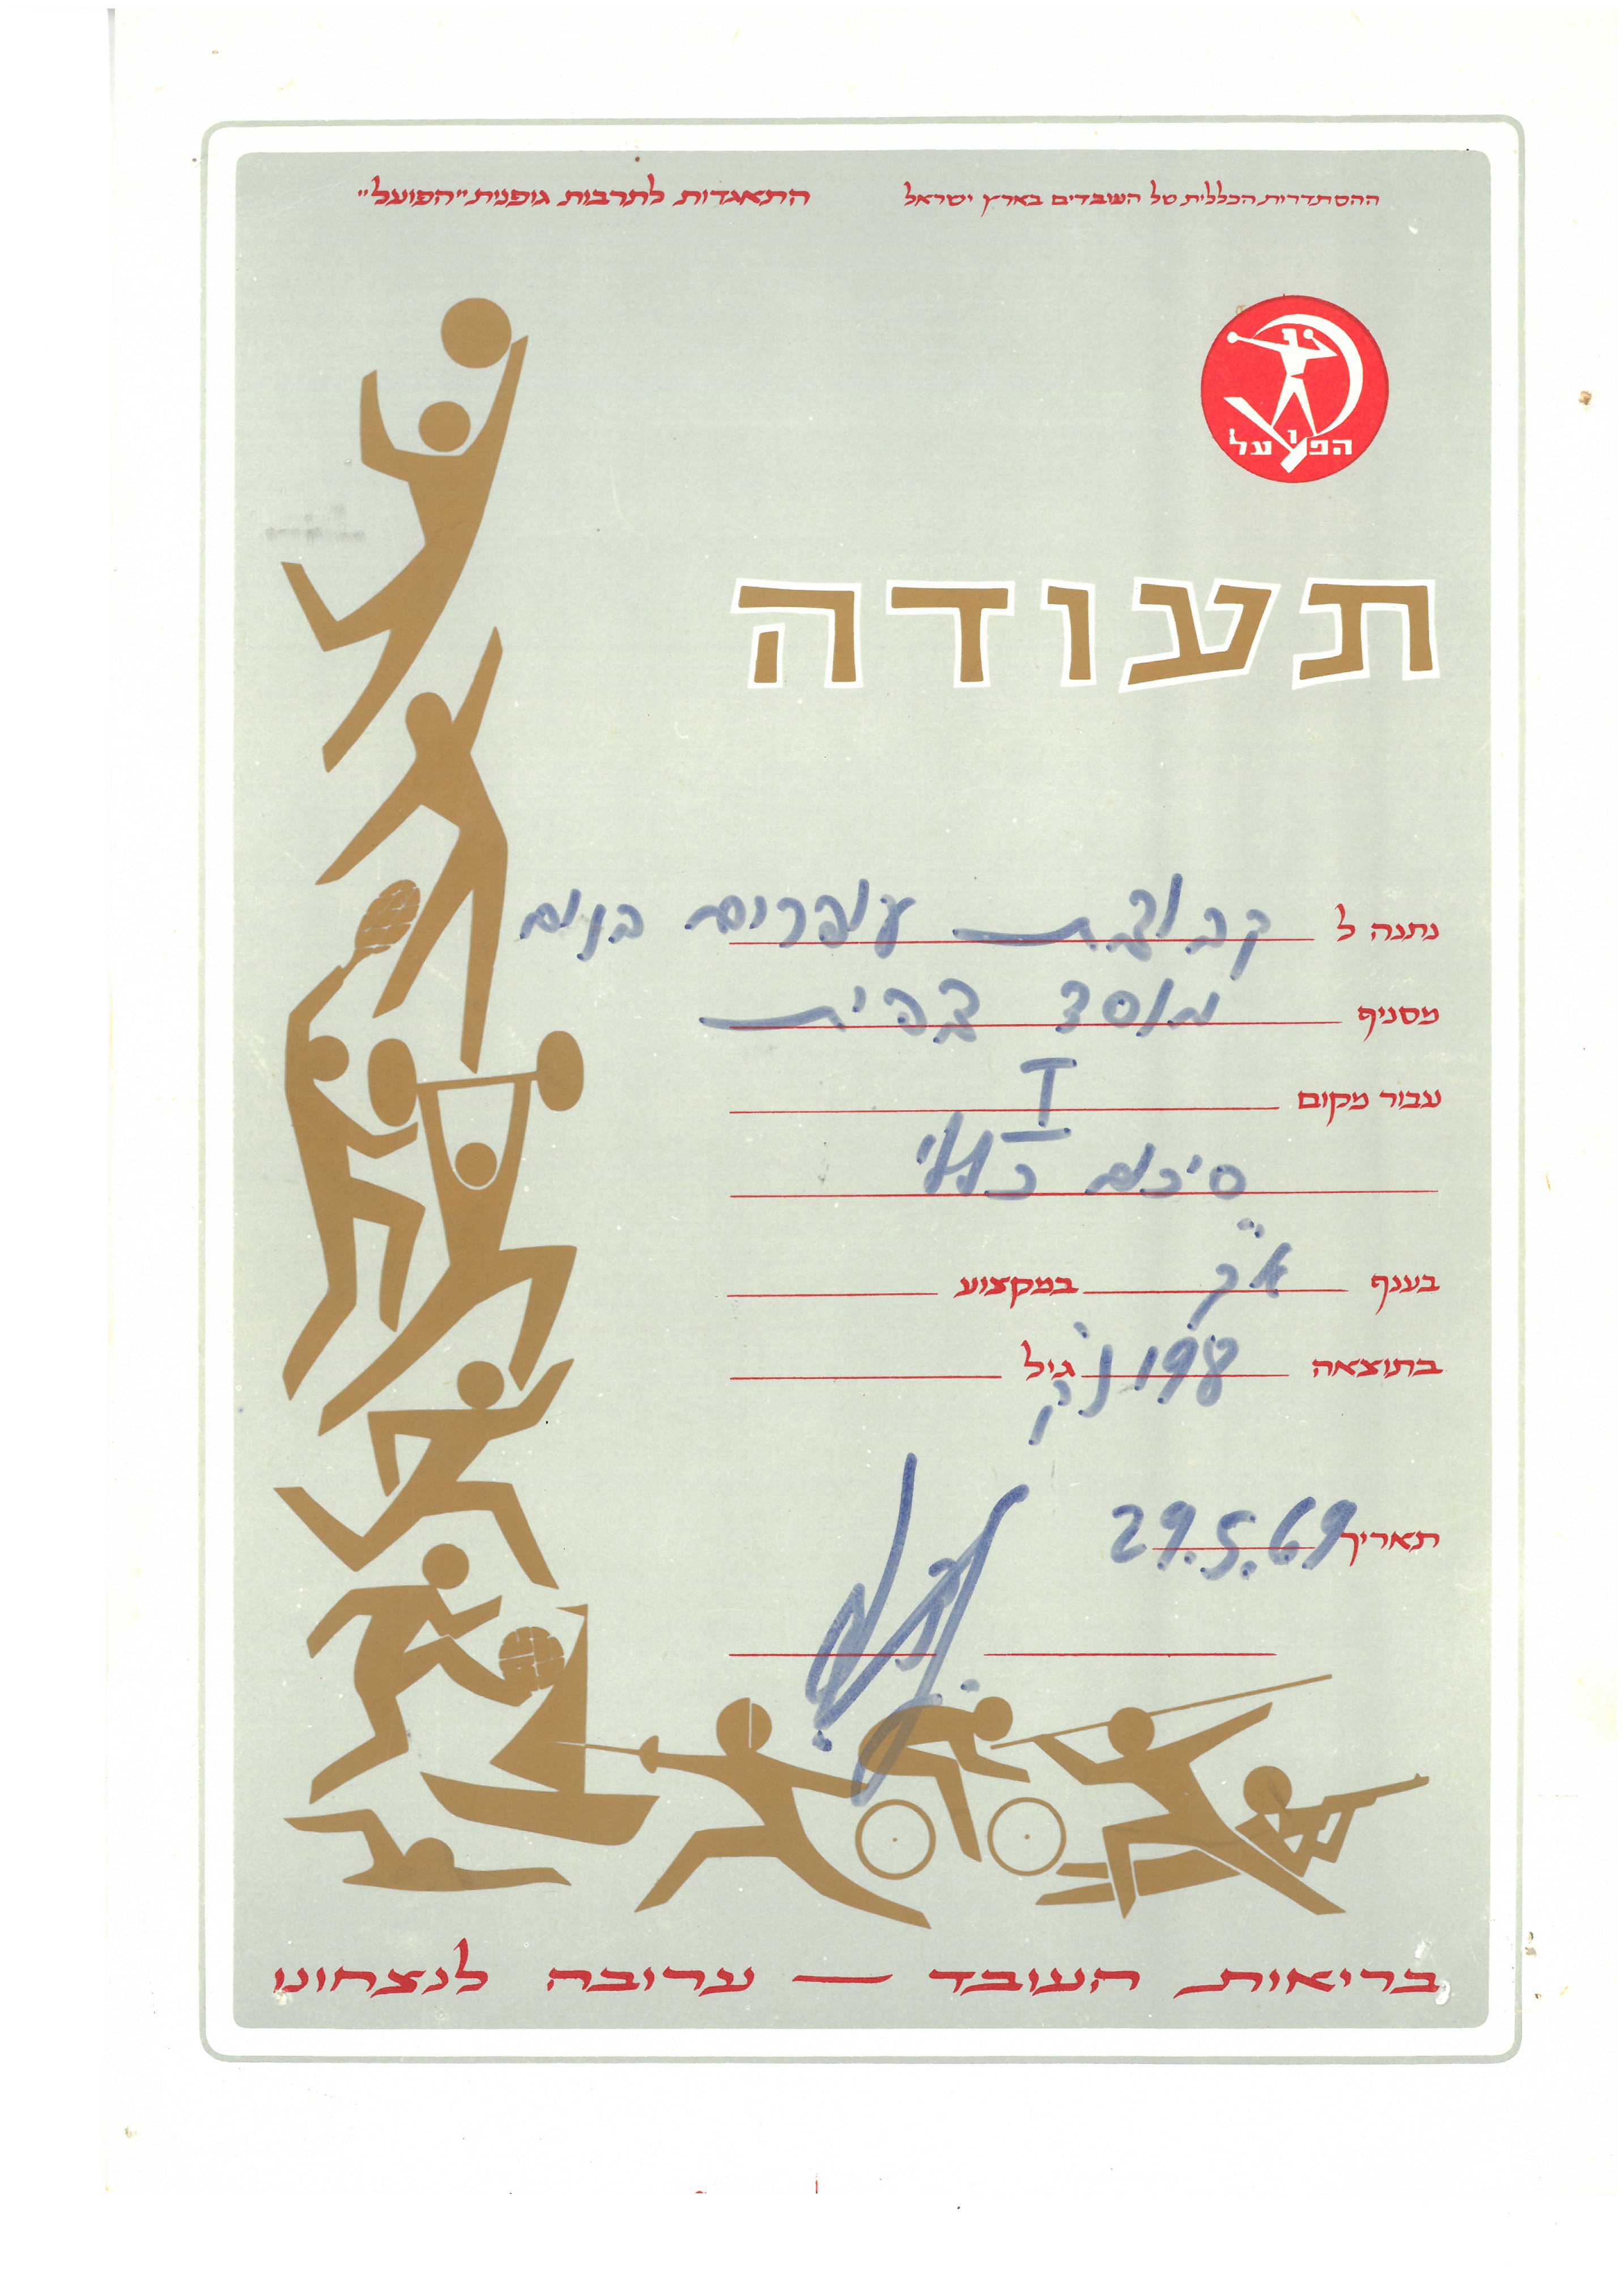 ההסתדרות הכללית של העובדים בארץ ישראל
התאגדות לתרבות גופנית "הפועל"
הפועל
תעודה
נתנה ל קבוצת עופרים בנים
מסניף מוסד בבית
עבור מקום I
סיכום כללי
בענף א"ק במקצוע
בתוצאה 198 נק' גיל
תאריך 29.5.69
בריאות העובד – ערובה לנצחונו